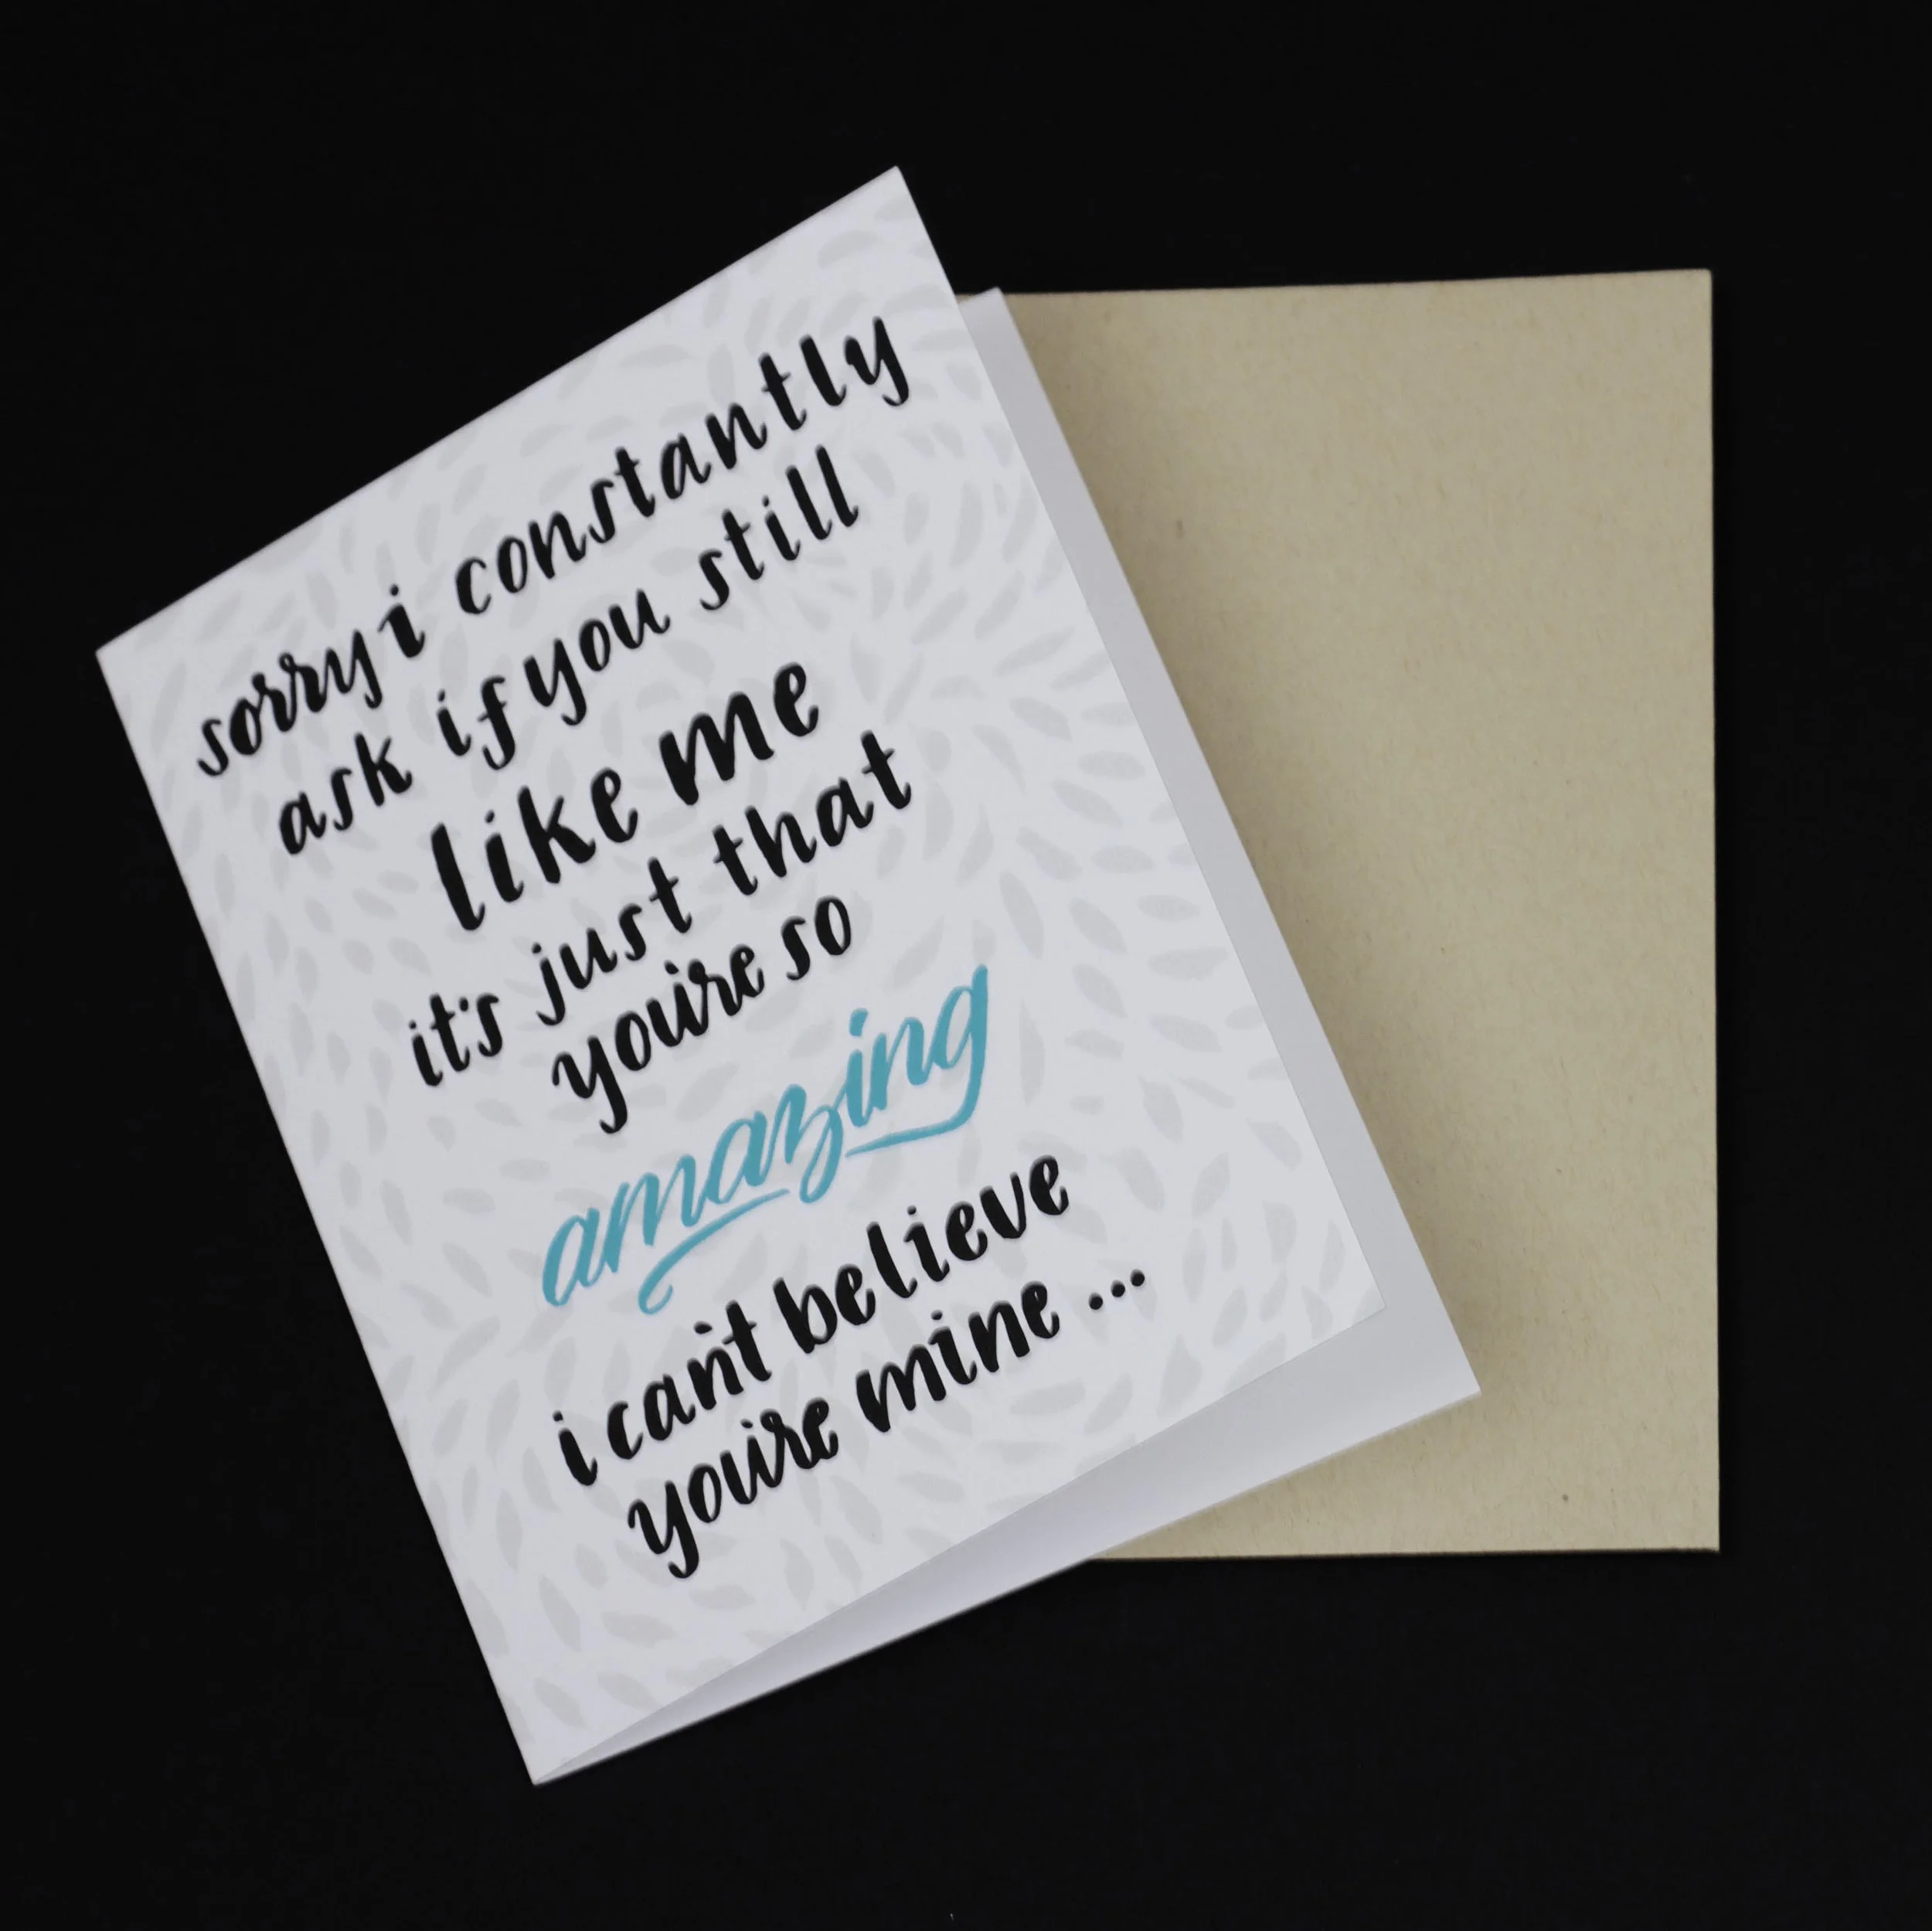 sorry i constantly
ask if you still
like me
it's just that
you're so
amazing
i can't believe
you're mine ...